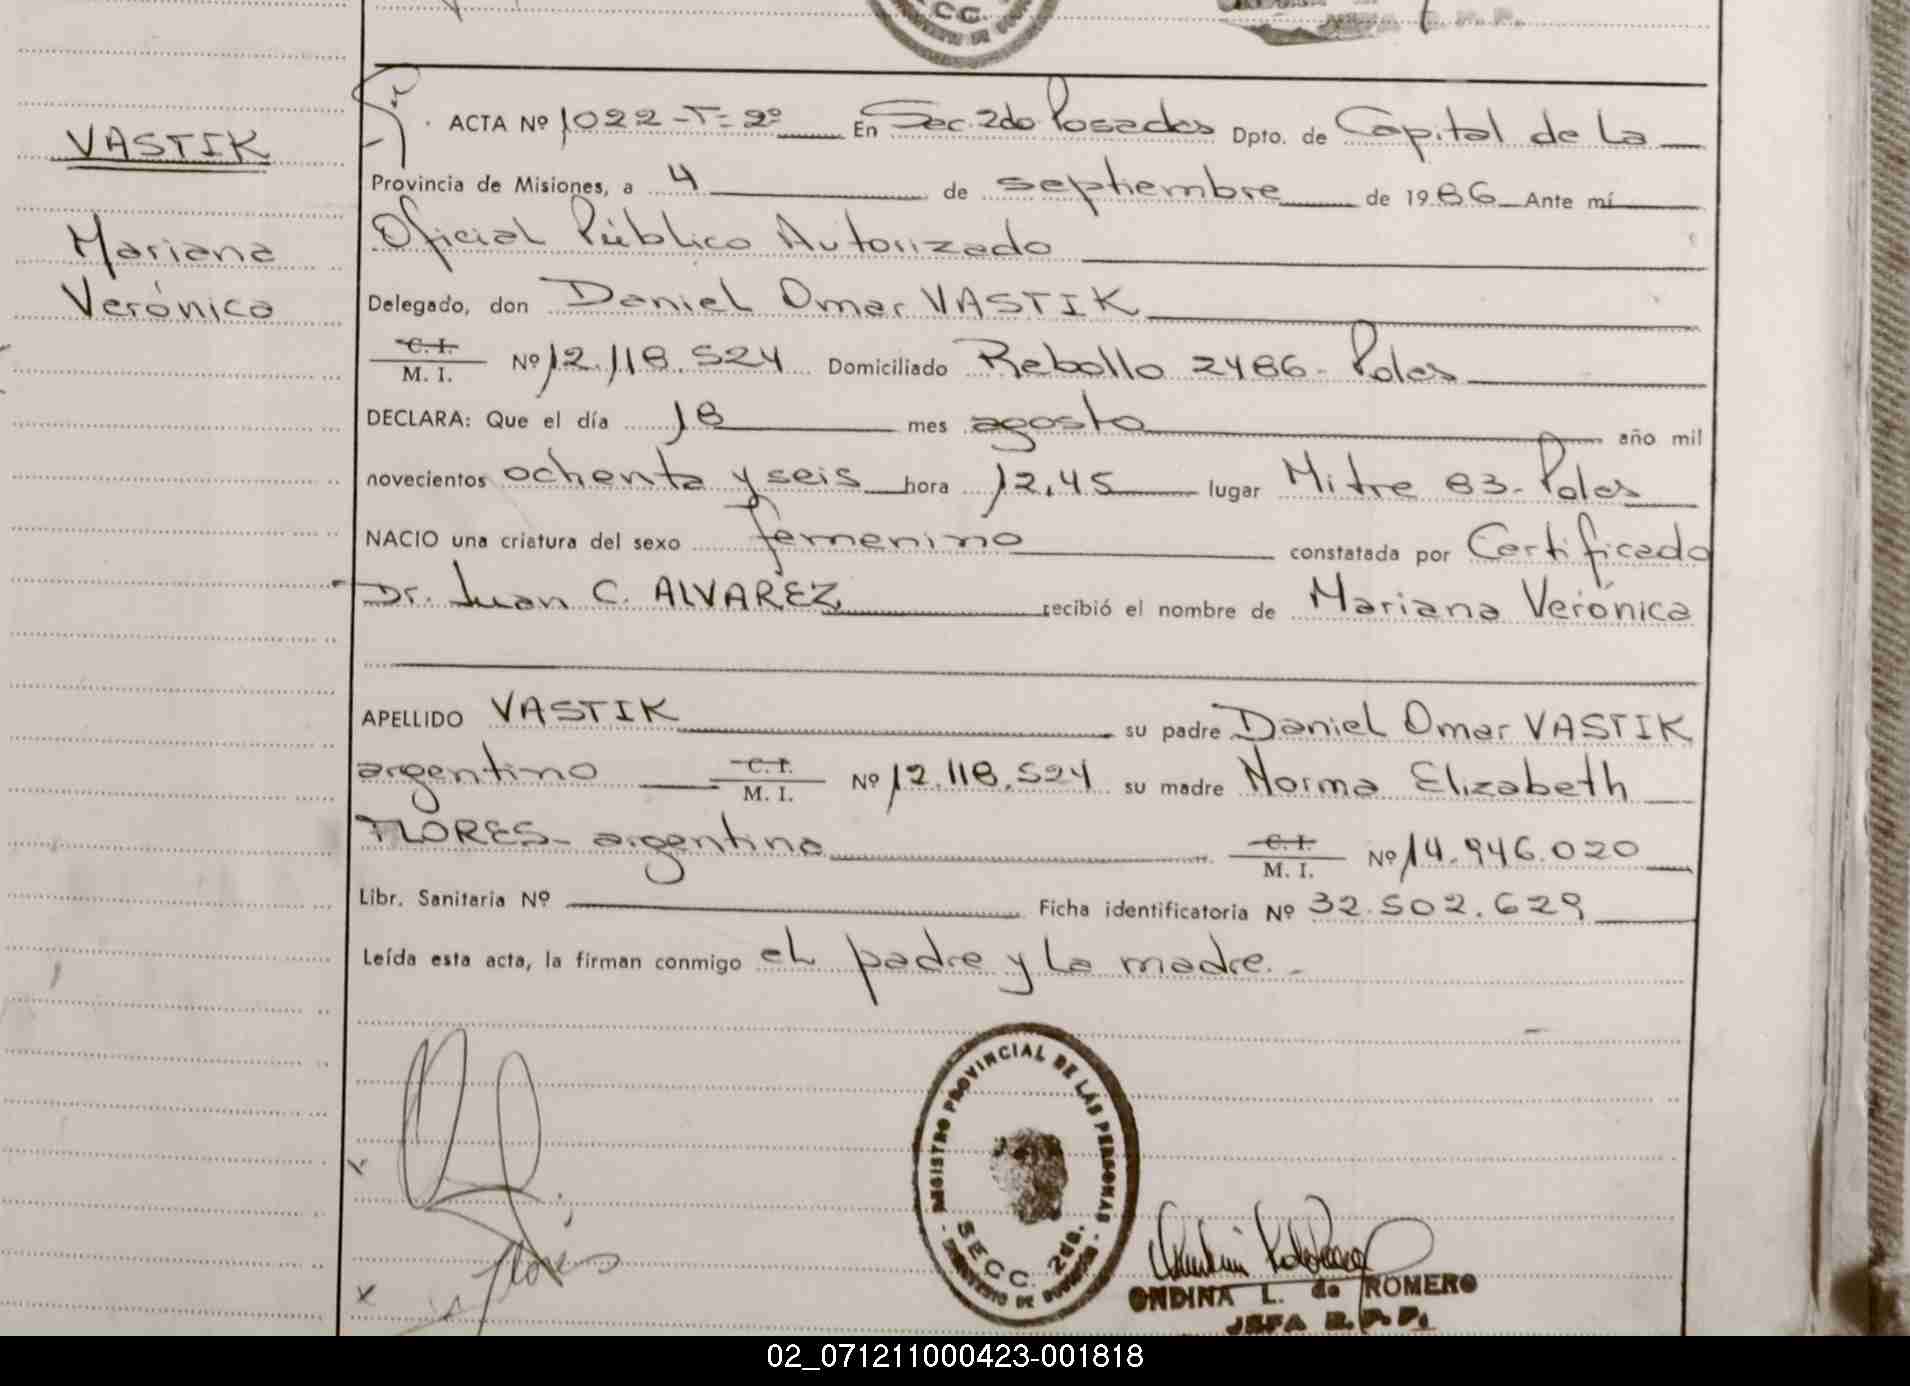 VASTIK
Mariana
Verónica
ACTA Nº 1022-T=2º En Sec. 2do Posadas Dpto. de Capital de La
Provincia de Misiones, a 4 de septiembre de 1986 Ante mí
Oficial Público Autorizado
Delegado, don Daniel Omar VASTIK
C. I.
M. I. Nº 12.118.524 Domiciliado Rebollo 2486- Pdas
DECLARA: Que el día 18 mes agosto año mil
novecientos ochenta y seis hora 12,45 lugar Mitre 83- Pdas
NACIO una criatura del sexo femenino constatada por Certificado
Dr. Juan C. ALVAREZ, recibió el nombre de Mariana Verónica
APELLIDO VASTIK su padre Daniel Omar VASTIK
argentino C. I.
M. I. Nº 12.118.524 su madre Norma Elizabeth
FLORES- argentina C. I.
M. I. Nº 14.946.020
Libr. Sanitaria Nº Ficha identificatoria Nº 32.502.629
Leída esta acta, la firman conmigo el padre y la madre.-
REGISTRO PROVINCIAL DE LAS PERSONAS
SECC. 2da.
Flores
ONDINA L. de ROMERO
JEFA R. P. P.
02_071211000423-001818